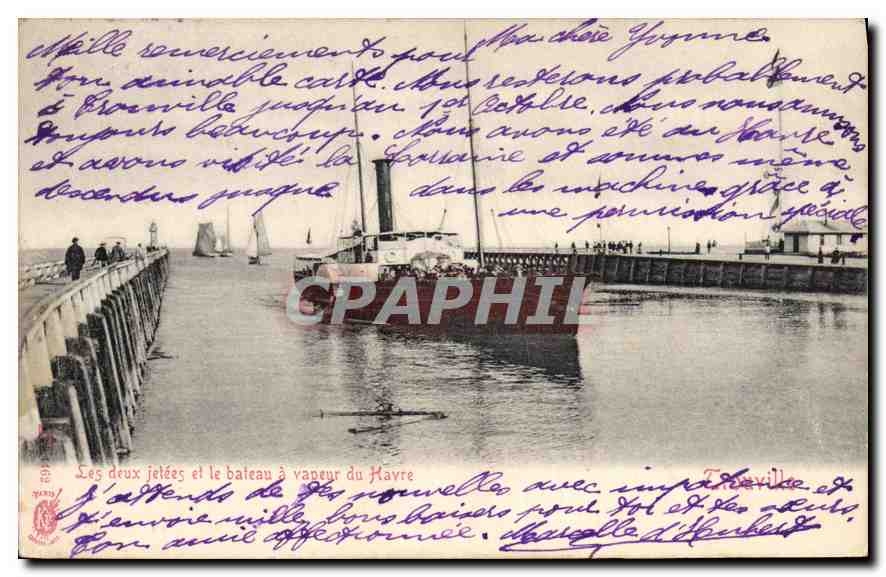 Ma chère Yvonne
Mille remerciements pour
ton aimable carte. Nous resterons probablement
à Trouville jusqu'au 1er Octobre. Nous nous amusons
toujours beaucoup. Nous avons été au Havre
et avons visité la Lorraine et sommes même
descendus jusque dans les machines grâce à
une permission spéciale
CPAPHIL
Les deux jetées et le bateau à vapeur du Havre
Trouville
PARIS
J'attends de tes nouvelles avec impatience et
t'envoie mille bons baisers pour toi et tes sœurs.
Ton amie affectionnée. Marcelle d'Hubert